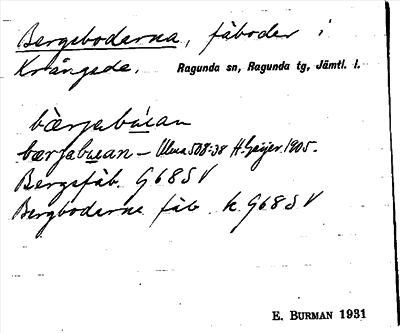 Bergsboderna, fäboder i
Krångede. Ragunda sn, Ragunda tg, Jämtl. l.
bærjabu̇an
bærjabuan – Ulma 508:38 H. Geijer. 1905.
Bergsfäb. G 68 S V
Bergboderna fäb. k. G 68 S V
E. BURMAN 1931